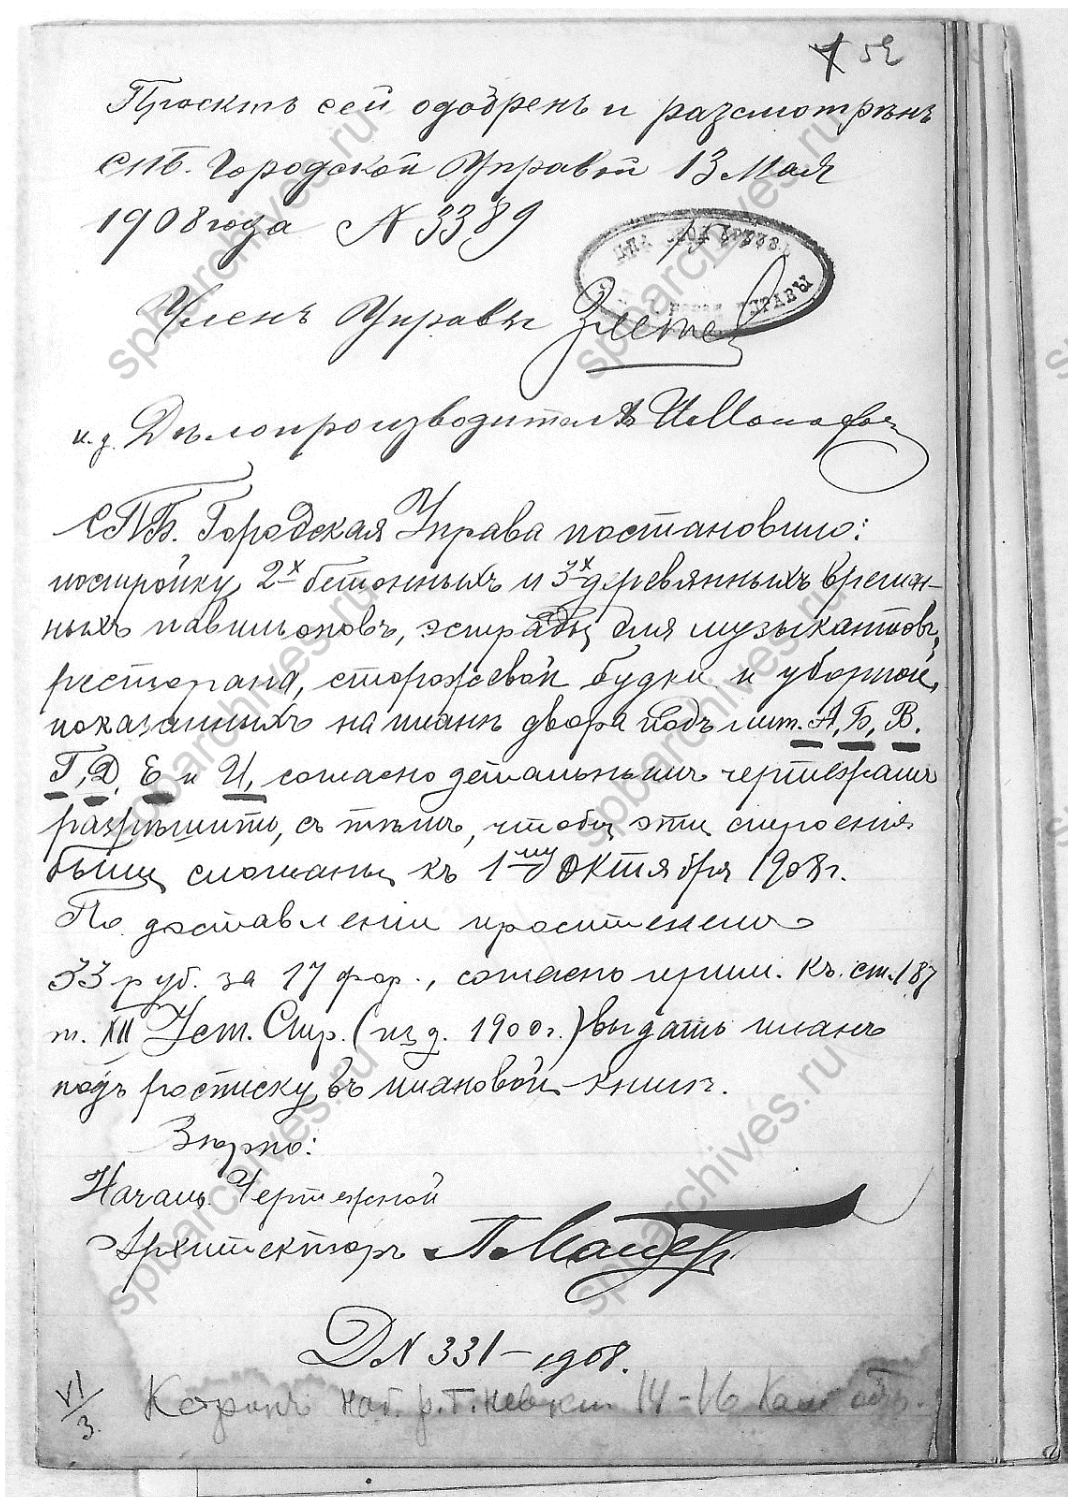 52
Проектъ сей одобренъ и разсмотрѣнъ
СПБ. Городской Управой 13 Мая
1908 года N 3389
УПРАВЫ
Членъ Управы
и. д. Дѣлопроизводителя
СПБ. Городская Управа постановила:
постройку 2х бетонныхъ и 3х деревянныхъ времен-
ныхъ павильоновъ, эстрады для музыкантовъ,
ресторана, сторожевой будки и уборной,
показанныхъ на планѣ двора подъ лит. А, Б, В.
Г, Д, Е и И, согласно детальнымъ чертежамъ
разрѣшить, съ тѣмъ, чтобы эти строенія
были сломаны къ 1му Октября 1908 г.
По доставленіи
33 руб. за 17 гор., согласно прим. къ ст. 187
т. XII Уст. Стр. (изд. 1900 г.) выдать планъ
подъ росписку въ плановой книгѣ.
Вѣрно:
Началь. Чертежной
Архитекторъ
Д N 331 – 1908.
VI/3. наб. р. Б. Невки 14-16
spbarchives.ru
spbarchives.ru
spbarchives.ru
spbarchives.ru
spbarchives.ru
spbarchives.ru